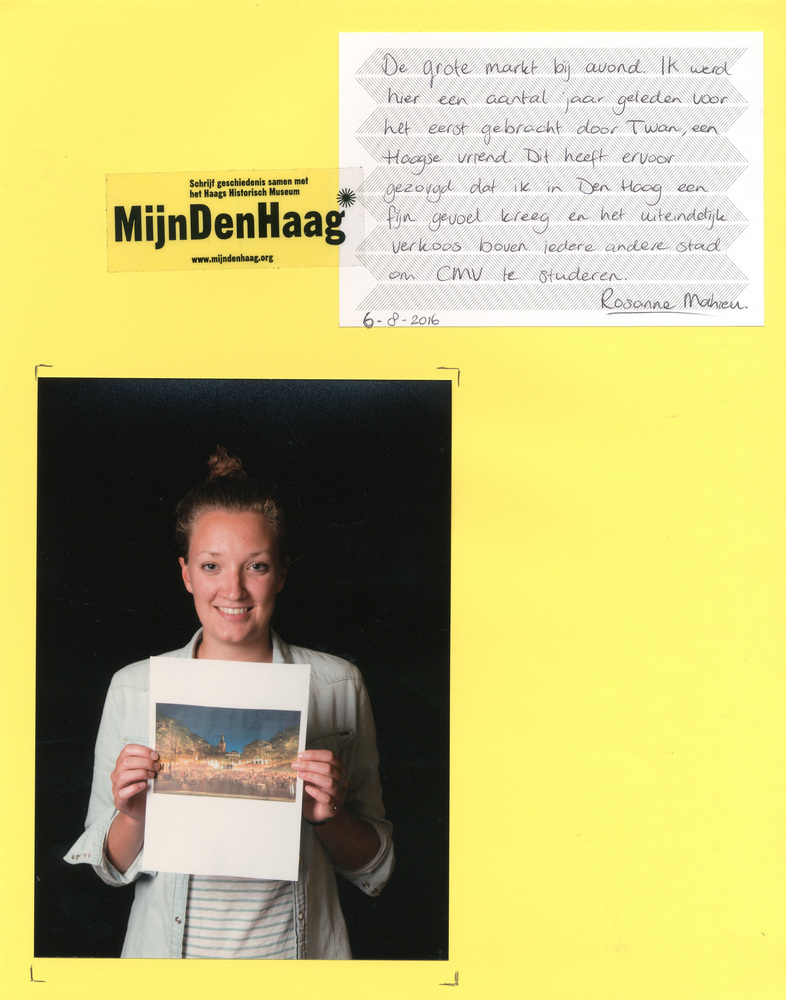 De grote markt bij avond. Ik werd
hier een aantal jaar geleden voor
het eerst gebracht door Twan, een
Haagse vriend. Dit heeft ervoor
gezorgd dat ik in Den Haag een
fijn gevoel kreeg en het uiteindelijk
verkoos boven iedere andere stad
om CMV te studeren.
Rosanne Mahieu.
6-8-2016
Schrijf geschiedenis samen met
het Haags Historisch Museum
MijnDenHaag
www.mijndenhaag.org